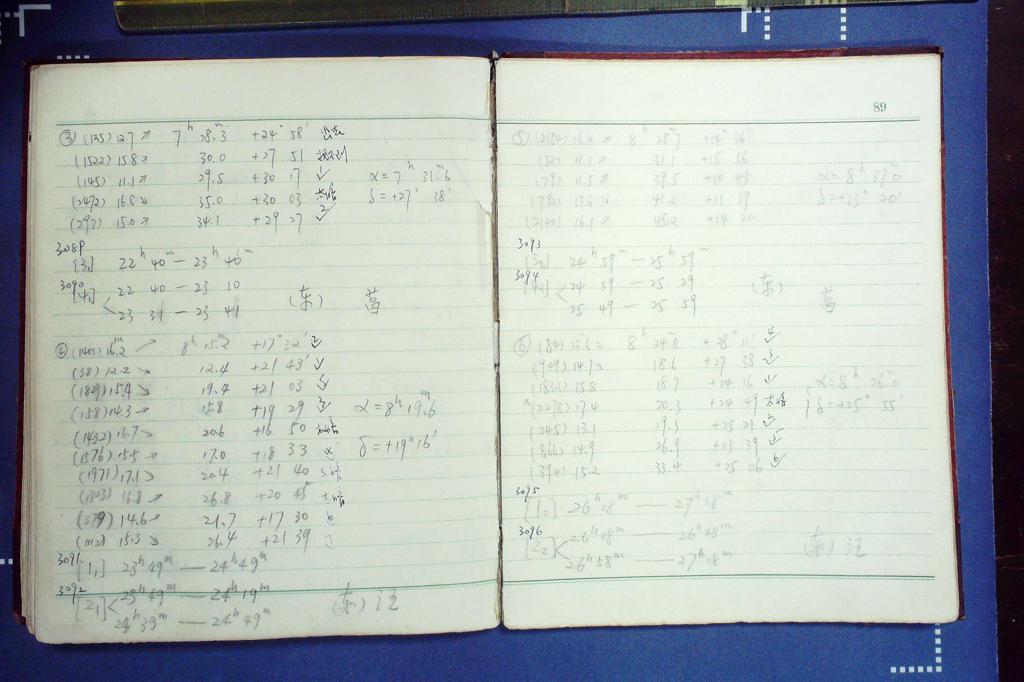 ③ (135) 12.7 ↗ 7ʰ 28ᵐ.3 +24° 58′
(1522) 15.8 30.0 +27 51 找不到
(145) 11.1 29.5 +30 17 ✓
(2472) 16.8 35.0 +30 03 太暗
(297) 15.0 34.1 +29 27 ✓
α = 7ʰ 31ᵐ.6
δ = +27° 38′
3089
[3₁] 22ʰ 40ᵐ — 23ʰ 40ᵐ
3090
[4₁] 22 40 — 23 10
23 31 — 23 41
(东)
④ (1401) 16.2 8ʰ 15ᵐ.2 +17° 32′
(38) 12.2 12.4 +21 43′
(1829) 15.4 19.4 +21 03
(158) 14.3 15.8 +19 29
(1432) 16.7 20.6 +16 50
(1576) 15.5 17.0 +18 33
(1971) 17.1 20.4 +21 40
(1803) 16.8 26.8 +20 45 太暗
(379) 14.6 21.7 +17 30
(1112) 15.3 26.4 +21 39
α = 8ʰ 19ᵐ.6
δ = +19° 16′
3091
[1₁] 23ʰ 49ᵐ — 24ʰ 49ᵐ
3092
[2₁] 23ʰ 49ᵐ — 24ʰ 19ᵐ
24ʰ 39ᵐ — 24ʰ 49ᵐ
(东) 汪
89
⑤ (2184) 16.2 8ʰ 28ᵐ.7 +14° 36′
(52) 11.1 31.1 +15 56
(79) 11.5 39.5 +10 43
(792) 13.6 43.2 +11 39
(2140) 16.1 45.2 +14 20
α = 8ʰ 37ᵐ.0
δ = +13° 20′
3093
[3₂] 24ʰ 59ᵐ — 25ʰ 59ᵐ
3094
[4₂] 24 59 — 25 29
25 49 — 25 59
(东)
⑥ (84) 13.6 8ʰ 24ᵐ.8 +28° 11′ ✓
(909) 14.7 18.6 +27 38
(1832) 15.8 18.7 +24 16 ✓
(2278) 17.4 20.3 +24 49 太暗
(245) 13.1 19.3 +25 21 ✓
(866) 14.9 26.9 +23 39 ✓
(394) 15.2 33.4 +25 06 ✓
α = 8ʰ 26ᵐ.0
δ = +25° 55′
3095
[1₂] 26ʰ 08ᵐ — 27ʰ 08ᵐ
3096
[2₂] 26ʰ 08ᵐ — 26ʰ 38ᵐ
26ʰ 58ᵐ — 27ʰ 08ᵐ
(东) 汪